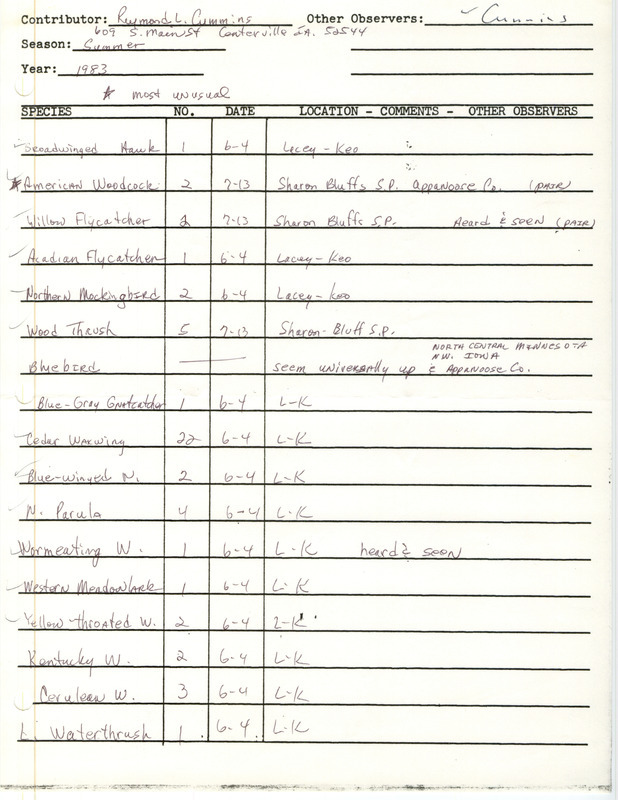 Contributor: Raymond L. Cummins Other Observers: Cummins
609 S. Main St Centerville IA. 52544
Season: Summer
Year: 1983
* most unusual
SPECIES NO. DATE LOCATION - COMMENTS - OTHER OBSERVERS
Broadwinged Hawk 1 6-4 Lacey-Keo
* American Woodcock 2 7-13 Sharon Bluffs S.P. Appanoose Co. (PAIR)
Willow Flycatcher 2 7-13 Sharon Bluffs S.P. Heard & seen (PAIR)
Acadian Flycatcher 1 6-4 Lacey-Keo
Northern Mockingbird 2 6-4 Lacey-Keo
Wood Thrush 5 7-13 Sharon-Bluff S.P.
NORTH CENTRAL MINNESOTA
NW. IOWA
Bluebird — seem universally up & Appanoose Co.
Blue-Gray Gnatcatcher 1 6-4 L-K
Cedar Waxwing 22 6-4 L-K
Blue-winged W. 2 6-4 L-K
N. Parula 4 6-4 L-K
Wormeating W. 1 6-4 L-K heard & seen
Western Meadowlark 1 6-4 L-K
Yellow-throated W. 2 6-4 L-K
Kentucky W. 2 6-4 L-K
Cerulean W. 3 6-4 L-K
L. Waterthrush 1 6-4 L-K